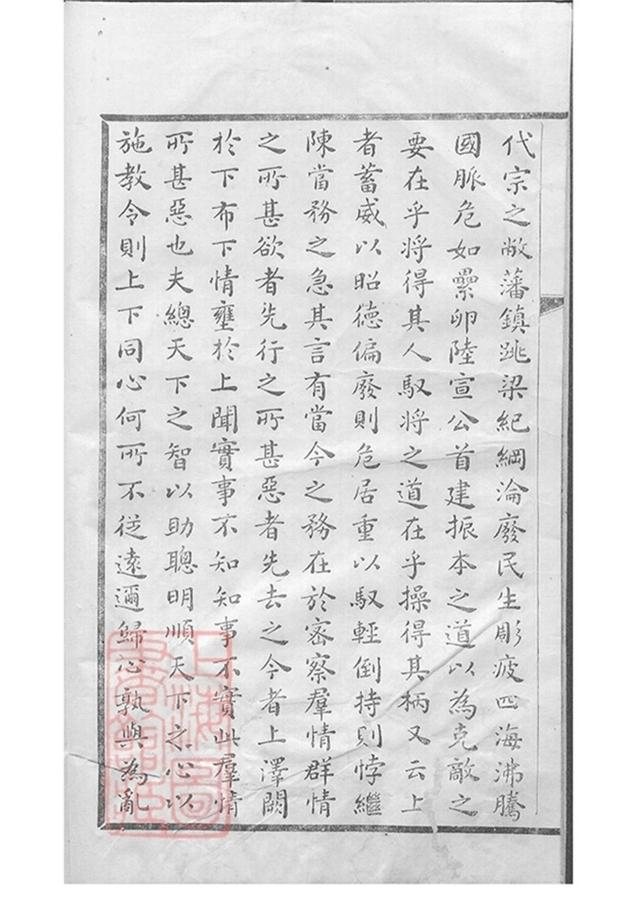 代宗之敝藩鎮跳梁紀綱淪廢民生彫疲四海沸騰
國脈危如纍卵陸宣公首建振本之道以為克敵之
要在乎將得其人馭將之道在乎操得其柄又云上
者蓄威以昭德偏廢則危居重以馭輕倒持則悖繼
陳當務之急其言有當今之務在於宻察羣情群情
之所甚欲者先行之所甚惡者先去之今者上澤闕
於下布下情壅於上聞實事不知知事不實此羣情
所甚惡也夫總天下之智以助聰明順天下之心以
施教令則上下同心何所不從遠邇歸心孰與為亂
上海圖
書館藏